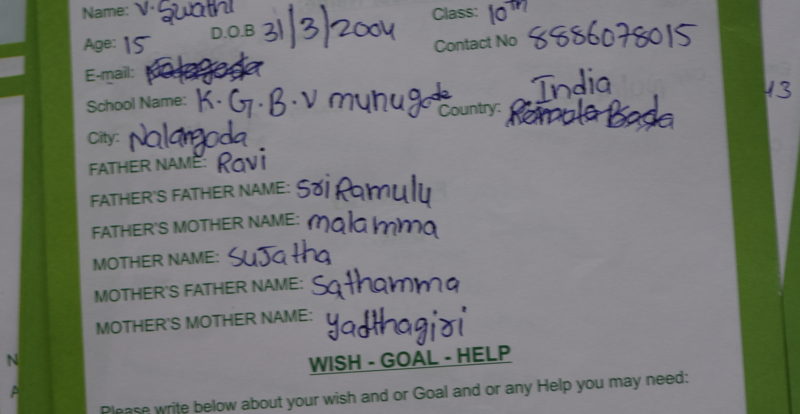 Name: V. Swathi Class: 10th
Age: 15 D.O.B 31/3/2004 Contact No 8886078015
E-mail:
School Name: K. G. B. V munugode Country: India
City: Nalangoda
FATHER NAME: Ravi
FATHER'S FATHER NAME: Sri Ramulu
FATHER'S MOTHER NAME: malamma
MOTHER NAME: SuJatha
MOTHER'S FATHER NAME: Sathamma
MOTHER'S MOTHER NAME: Yadthagiri
WISH - GOAL - HELP
Please write below about your wish and or Goal and or any Help you may need: